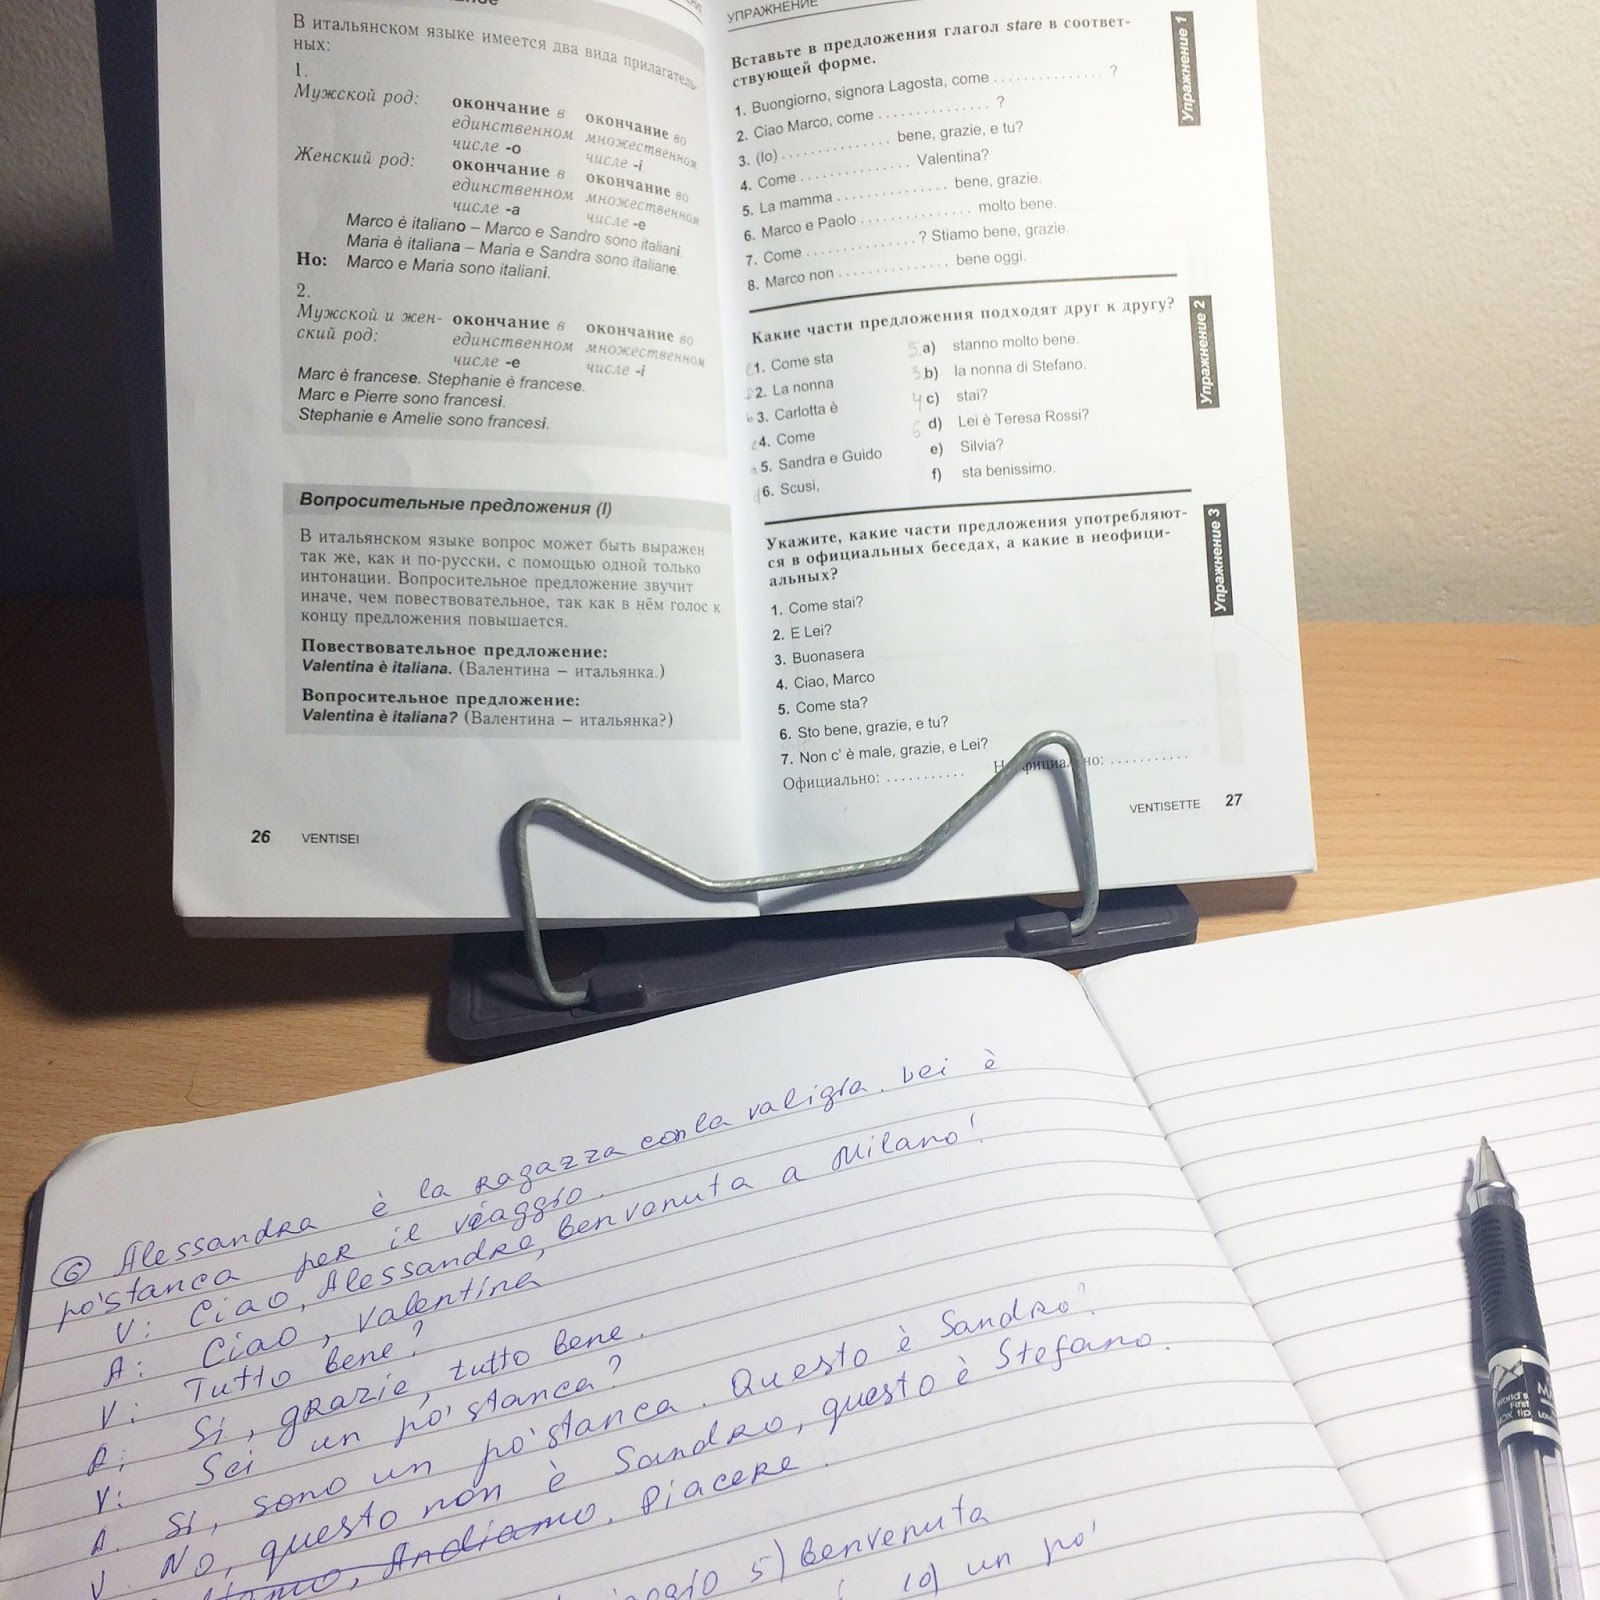 В итальянском языке имеется два вида прилагатель-
ных:
1.
Мужской род: окончание в единственном числе -o окончание во множественном числе -i
Женский род: окончание в единственном числе -a окончание во множественном числе -e
Marco è italiano – Marco e Sandro sono italiani.
Maria è italiana – Maria e Sandra sono italiane.
Но: Marco e Maria sono italiani.
2.
Мужской и жен-
ский род: окончание в единственном числе -e окончание во множественном числе -i
Marc è francese. Stephanie è francese.
Marc e Pierre sono francesi.
Stephanie e Amelie sono francesi.
Вопросительные предложения (I)
В итальянском языке вопрос может быть выражен
так же, как и по-русски, с помощью одной только
интонации. Вопросительное предложение звучит
иначе, чем повествовательное, так как в нём голос к
концу предложения повышается.
Повествовательное предложение:
Valentina è italiana. (Валентина – итальянка.)
Вопросительное предложение:
Valentina è italiana? (Валентина – итальянка?)
26 VENTISEI
УПРАЖНЕНИЕ
Упражнение 1
Вставьте в предложения глагол stare в соответ-
ствующей форме.
1. Buongiorno, signora Lagosta, come . . . . . . . . . . . . . . . ?
2. Ciao Marco, come . . . . . . . . . . . . . . . ?
3. (Io) . . . . . . . . . . . . . . . bene, grazie, e tu?
4. Come . . . . . . . . . . . . . . . Valentina?
5. La mamma . . . . . . . . . . . . . . . bene, grazie.
6. Marco e Paolo . . . . . . . . . . . . . . . molto bene.
7. Come . . . . . . . . . . . . . . . ? Stiamo bene, grazie.
8. Marco non . . . . . . . . . . . . . . . bene oggi.
Упражнение 2
Какие части предложения подходят друг к другу?
1. Come sta 5 a) stanno molto bene.
2. La nonna 3 b) la nonna di Stefano.
3. Carlotta è 4 c) stai?
4. Come 6 d) Lei è Teresa Rossi?
5. Sandra e Guido e) Silvia?
6. Scusi, f) sta benissimo.
Упражнение 3
Укажите, какие части предложения употребляют-
ся в официальных беседах, а какие в неофици-
альных?
1. Come stai?
2. E Lei?
3. Buonasera
4. Ciao, Marco
5. Come sta?
6. Sto bene, grazie, e tu?
7. Non c' è male, grazie, e Lei?
Официально: . . . . . . . . . . . Неофициально: . . . . . . . . . . .
VENTISETTE 27
6 Alessandra è la ragazza con la valigia. Lei è
po'stanca per il viaggio.
V: Ciao, Alessandra, benvenuta a Milano!
A: Ciao, Valentina
V: Tutto bene?
A: Si, grazie, tutto bene.
V: Sei un po'stanca?
A. Si, sono un po'stanca. Questo è Sandro?
V. No, questo non è Sandro, questo è Stefano.
Andiamo. Piacere.
5) benvenuta
10) un po'
World's
First